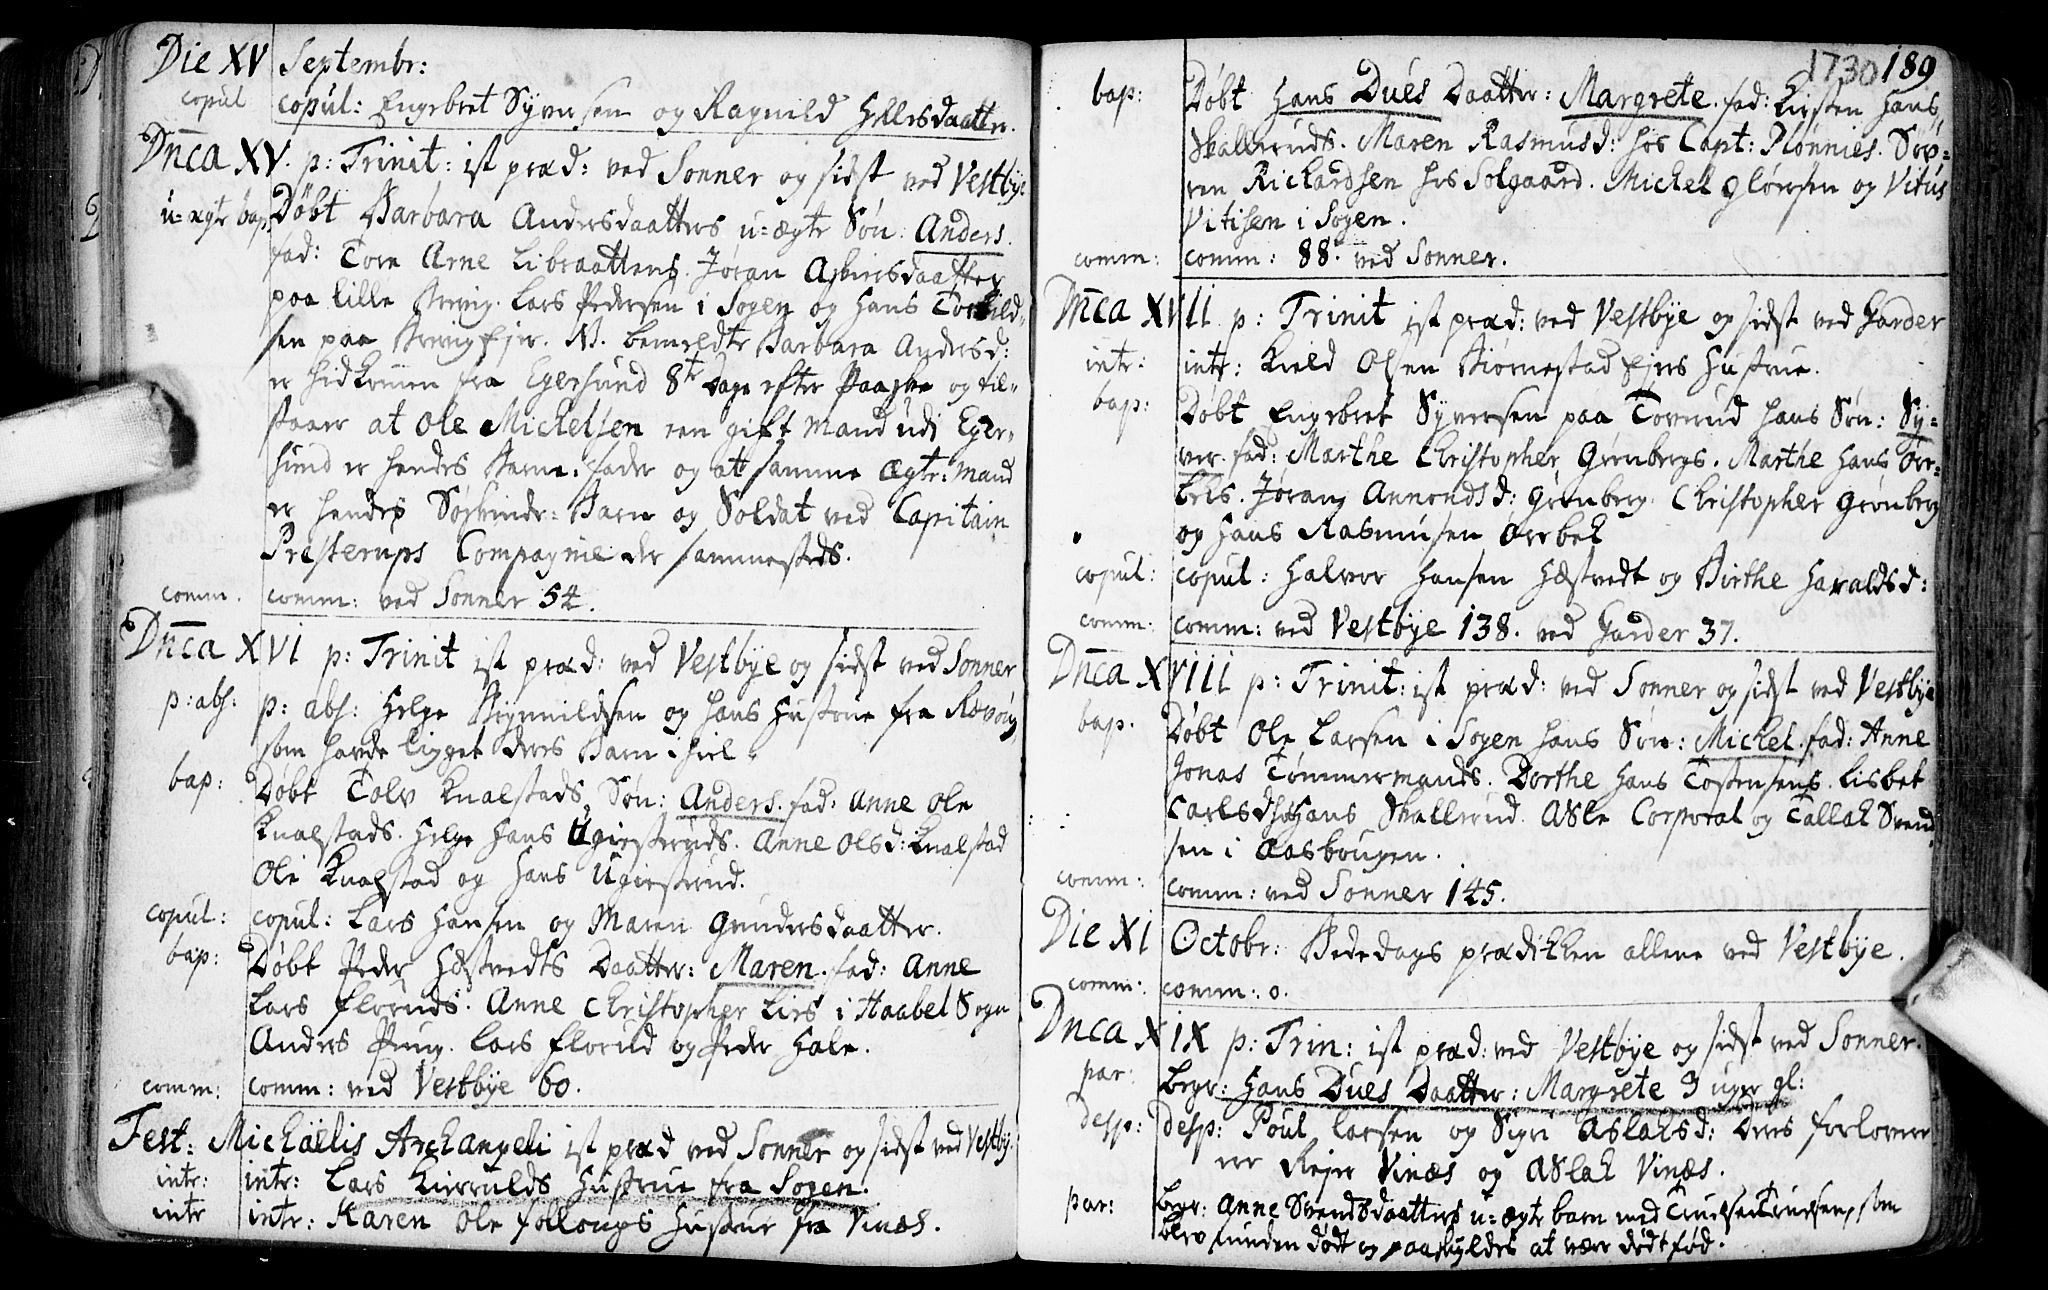 Die XV Septembr:
copul copul: Engebret Syversen og Ragnild Hellesdaatter.
Dnca XV. p: Trinit: ist præd: ved Sonner og sidst ved Vestbÿe
u=ægte bap: Døbt Barbara Andersdaatters u=ægte Søn: Anders.
fad: Tore Arne Libraattens. Jøran Asbiørsdaatter
paa lille Brevig. Lars Pedersen i Sogen og Hans Torkild=
sen paa Brevig ejer. N. bemeldte Barbara Andersd:
er hidkommen fra Egersund 8te Dage efter Paaske og til=
staar at Ole Michelsen een gift Mand udi Eger=
sund er hendes Barne=fader og at samme ægte=Mand
er hendes Søskinde=Barn og Soldat ved Capitain
Presterups Compagnie der sammesteds.
comm. comm: ved Sonner 54.
Dnca XVI p: Trinit ist præd: ved Vestbÿe og sidst ved Sonner
p: abs: p: abs: Helge Bryniildsen og hans Hustrue fra
som hafde ligget deres Barn ihiel.
bap: Døbt Tolv Knalstads Søn: Anders. fad: Anne Ole
Knalstads. Helge Hans Ugiesteruds. Anne Olsd: Knalstad
Ole Knalstad og Hans Ugiesterud.
copul: copul: Lars Hansen og Maren Gundersdaatter.
bap: Døbt Peder Hæstvedts Daatter: Maren. fad: Anne
Lars Floruds. Anne Christopher Lies i Haabel Sogn
Anders Pung. Lars Florud og Peder Hale.
comm: comm: ved Vestbÿe 60.
Fest: Michaëlis Archangeli ist præd ved Sonner og sidst ved Vestbÿ.
intr: intr: Lars Kierulds Hustrue fra Sogen.
intr intr: Karen Ole Follougs Hustrue fra Vinæs.
1730 189
bap: Døbt Hans Dues Daatter: Margrete. fad: Kirsten Hans
Skalleruds. Maren Rasmusd: hos Capt: Plønnies. Søv=
ren Richardsen hos Solgaard. Michel Glørsen og Vitus
Vitisen i Sogen.
comm: comm: 88. ved Sonner.
Dnca XVII p: Trinit ist præd: ved Vestbÿe og sidst ved Garder
intr: intr: Kield Olsen Biørnestad ejers Hustrue.
bap: Døbt Engebret Syversen paa Toverud hans Søn: Sy=
ver. fad: Marthe Christopher Grønbergs. Marthe Hans Orre=
beks. Jøran Amondsd: Grønberg. Christopher Grønberg
og Hans Rasmusen Orrbek
copul: copul: Halvor Hansen Hæstvedt og Birthe Haraldsd:
comm: comm: ved Vestbÿe 138. ved Garder 37.
Dnca XVIII p: Trinit: ist præd: ved Sonner og sidst ved Vestbÿe
bap. Døbt Ole Larsen i Sogen hans Søn: Michel. fad: Anne
Jonas Tømmermands. Dorthe Hans Tostensens. Lisbet
Carlsd: hos Hans Skallerud. Asle Corporal og Tallak Svend
sen i Aasbougen.
comm: comm: ved Sonner 145.
Die XI Octobr: Bededags prædikken allene ved Vestbÿe.
comm: comm: 0.
Dnca XIX p: Trin: ist præd: ved Vestbÿe og sidst ved Sonner.
par: begr: Hans Dues Daatter: Margrete 3 uger gl:
desp: desp: Poul Larsen og Sigri Aslaksd: Deres forlover
ere Rejer Vinæs og Aslak Vinæs.
par: begr: Anne Svendsdaatters u=ægte barn med som
blev funden dødt og paaskyldes at være dødt fød.